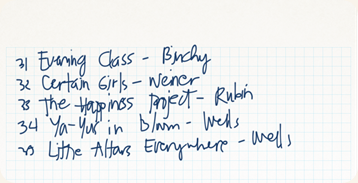 31 Evening Class - Binchy
32 Certain Girls - Weiner
33 The Happiness Project - Rubin
34 Ya-Yas in Bloom - Wells
35 Little Altars Everywhere - Wells